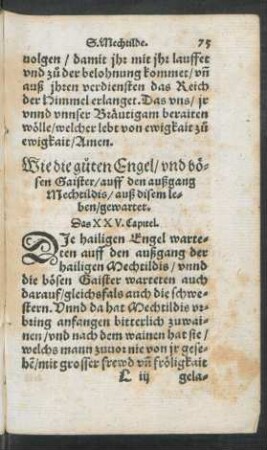 S. Mechtilde. 75
volgen / damit jhr mit jhr lauffet
vnd zů der belohnung kommet / vñ
auß jhren verdiensten das Reich
der Himmel erlanget. Das vns / jr
vnnd vnnser Bräutigam beraiten
wölle / welcher lebt von ewigkait zů
ewigkait / Amen.
Wie die gůten Engel / vnd bö-
sen Gaister / auff den außgang
Mechtildis / auß disem le-
ben / gewartet.
Das XXV. Capitel.
DJe hailigen Engel warte-
ten auff den außgang der
hailigen Mechtildis / vnnd
die bösen Gaister warteten auch
darauf / gleichsfals auch die schwe-
stern. Vnnd da hat Mechtildis vr-
bring anfangen bitterlich zuwai-
nen / vnd nach dem wainen hat sie /
welchs mann zuuor nie von jr gese-
hẽ / mit grosser frewd vñ frölig​kait
L iij gela-